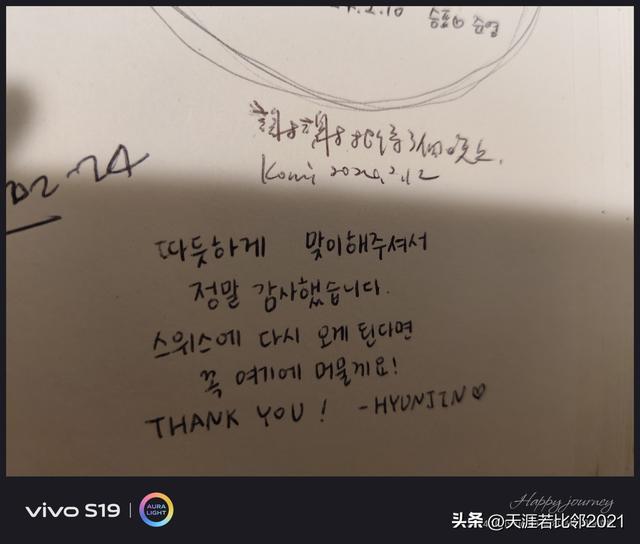 2.10 승표♡준영
Komi 2024.2.12
02-24
따듯하게 맞이해주셔서
정말 감사했습니다.
스위스에 다시 오게 된다면
꼭 여기에 머물게요!
THANK YOU! -HYUNJIN♡
vivo S19
AURA
LIGHT
Happy journey
头条 @天涯若比邻2021